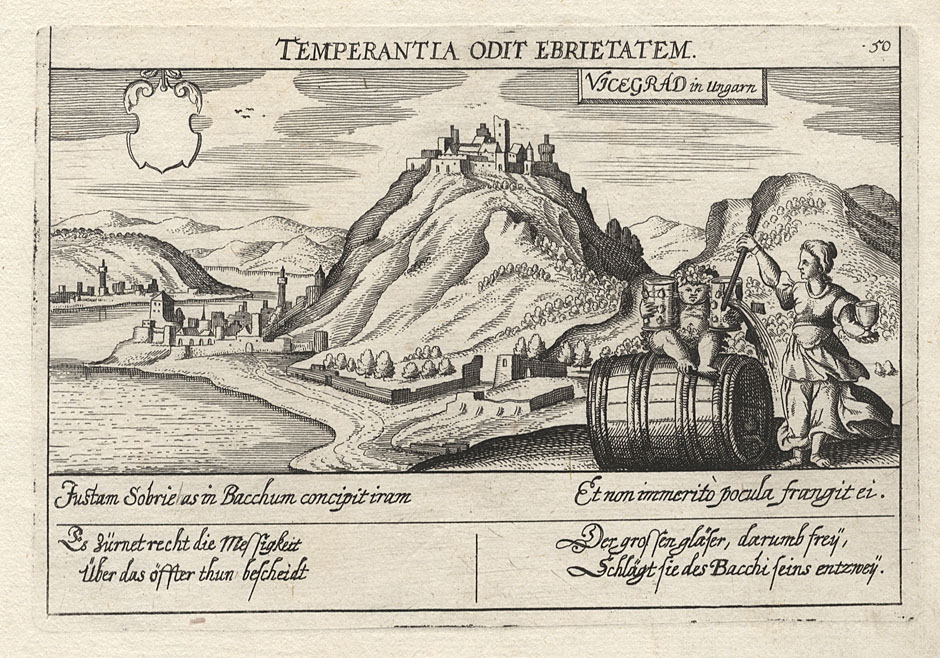 TEMPERANTIA ODIT EBRIETATEM.
50
VICEGRAD in Ungarn
Justam Sobrietas in Bacchum concipit iram
Et non immeritò pocula frangit ei.
Es zürnet recht die Messigkeit
Über das öffter thun bescheidt
Der grossen gläser, darumb freÿ,
Schlägt sie des Bacchi seins entzweÿ.